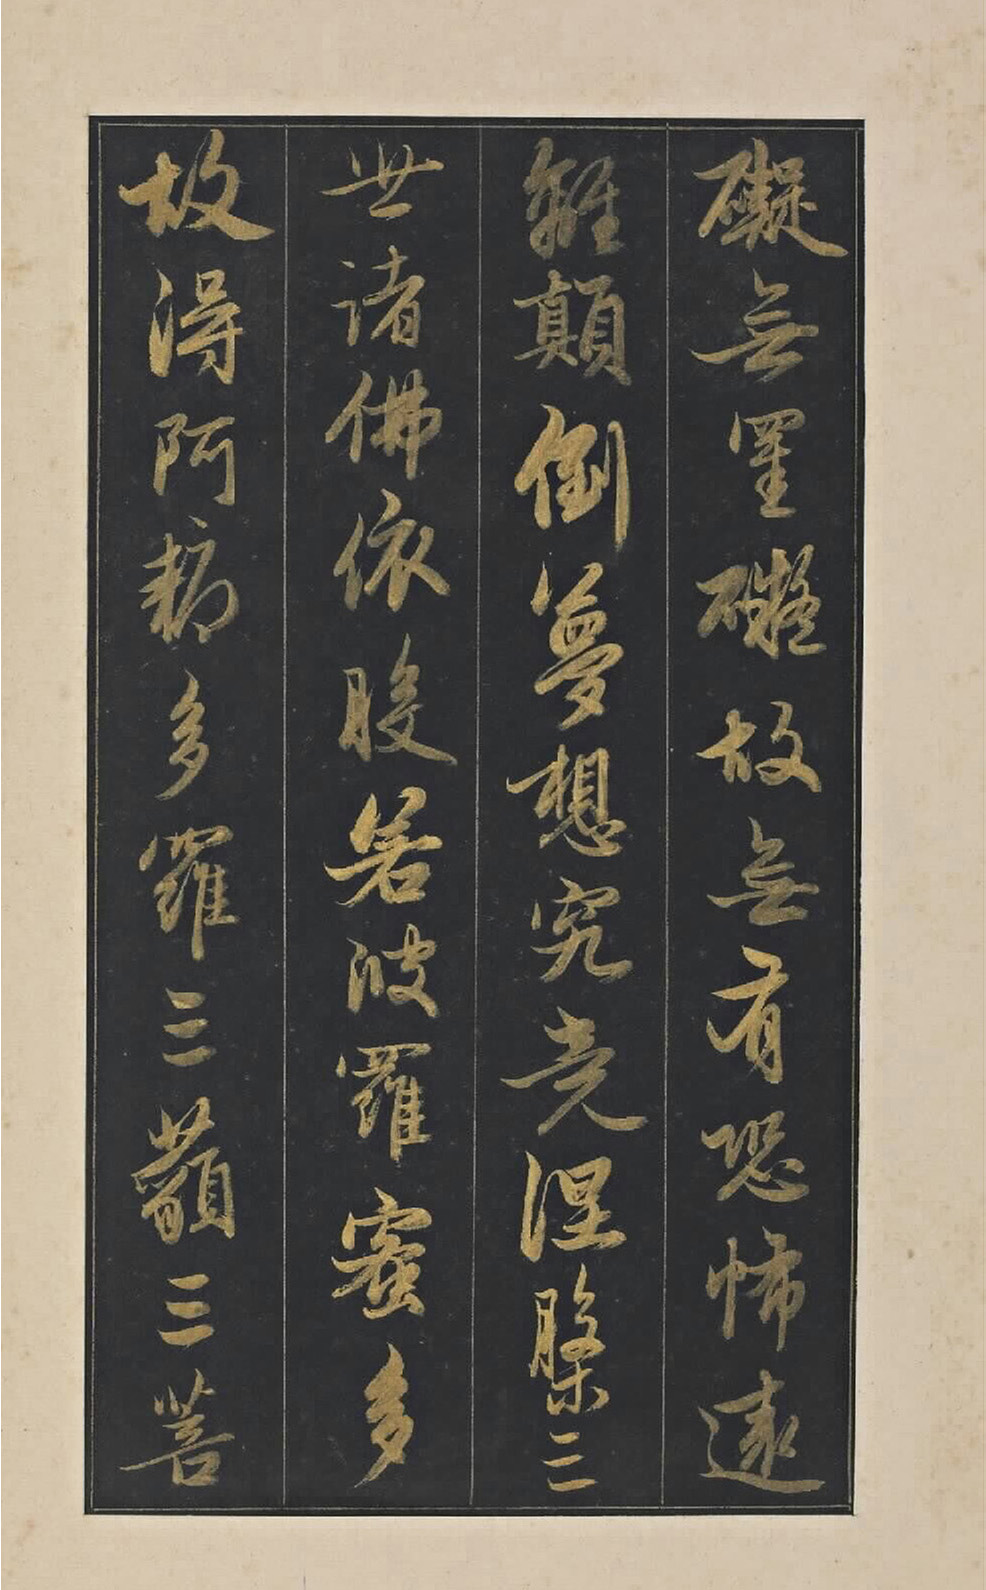 礙無罣礙故無有恐怖遠
離顛倒夢想究竟涅槃三
世諸佛依般若波羅蜜多
故得阿耨多羅三藐三菩